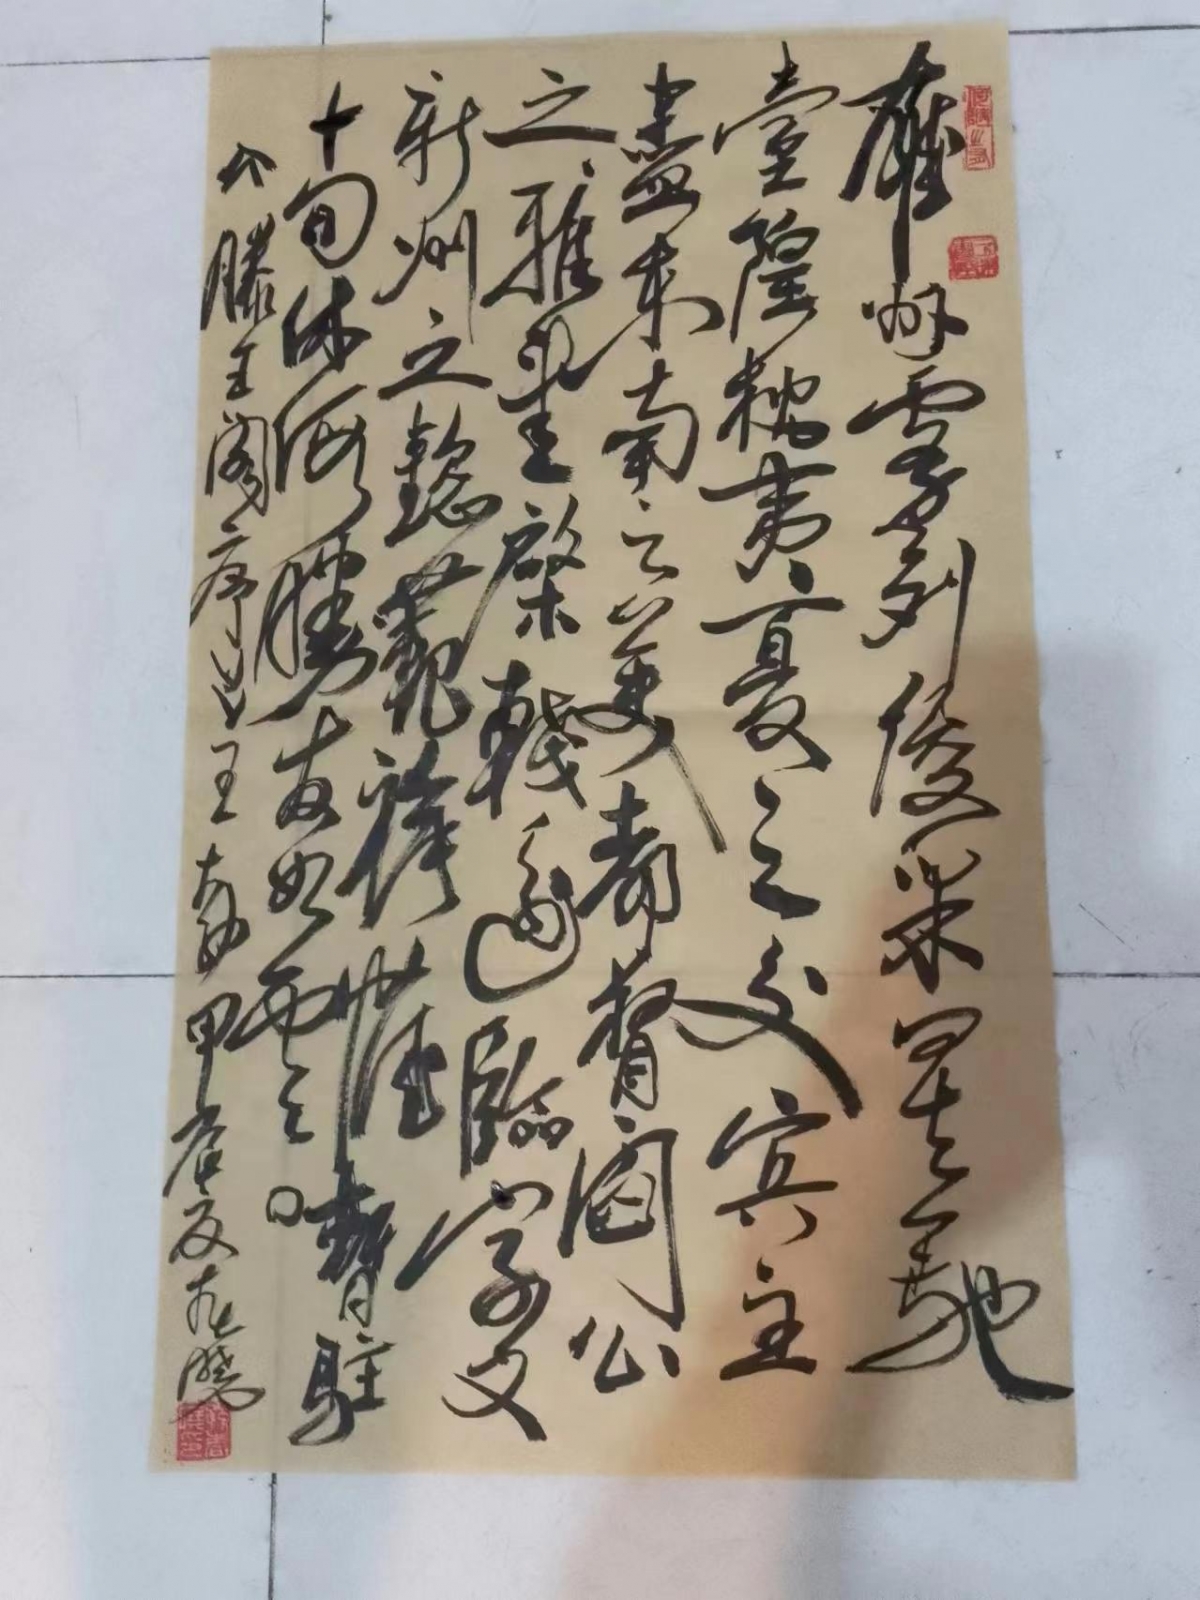 雄州雾列俊采星驰
台隍枕夷夏之交宾主
尽东南之美都督阎公
之雅望棨戟遥临宇文
新州之懿范襜帷暂驻
十旬休假胜友如云
滕王阁序 王勃 甲辰夏